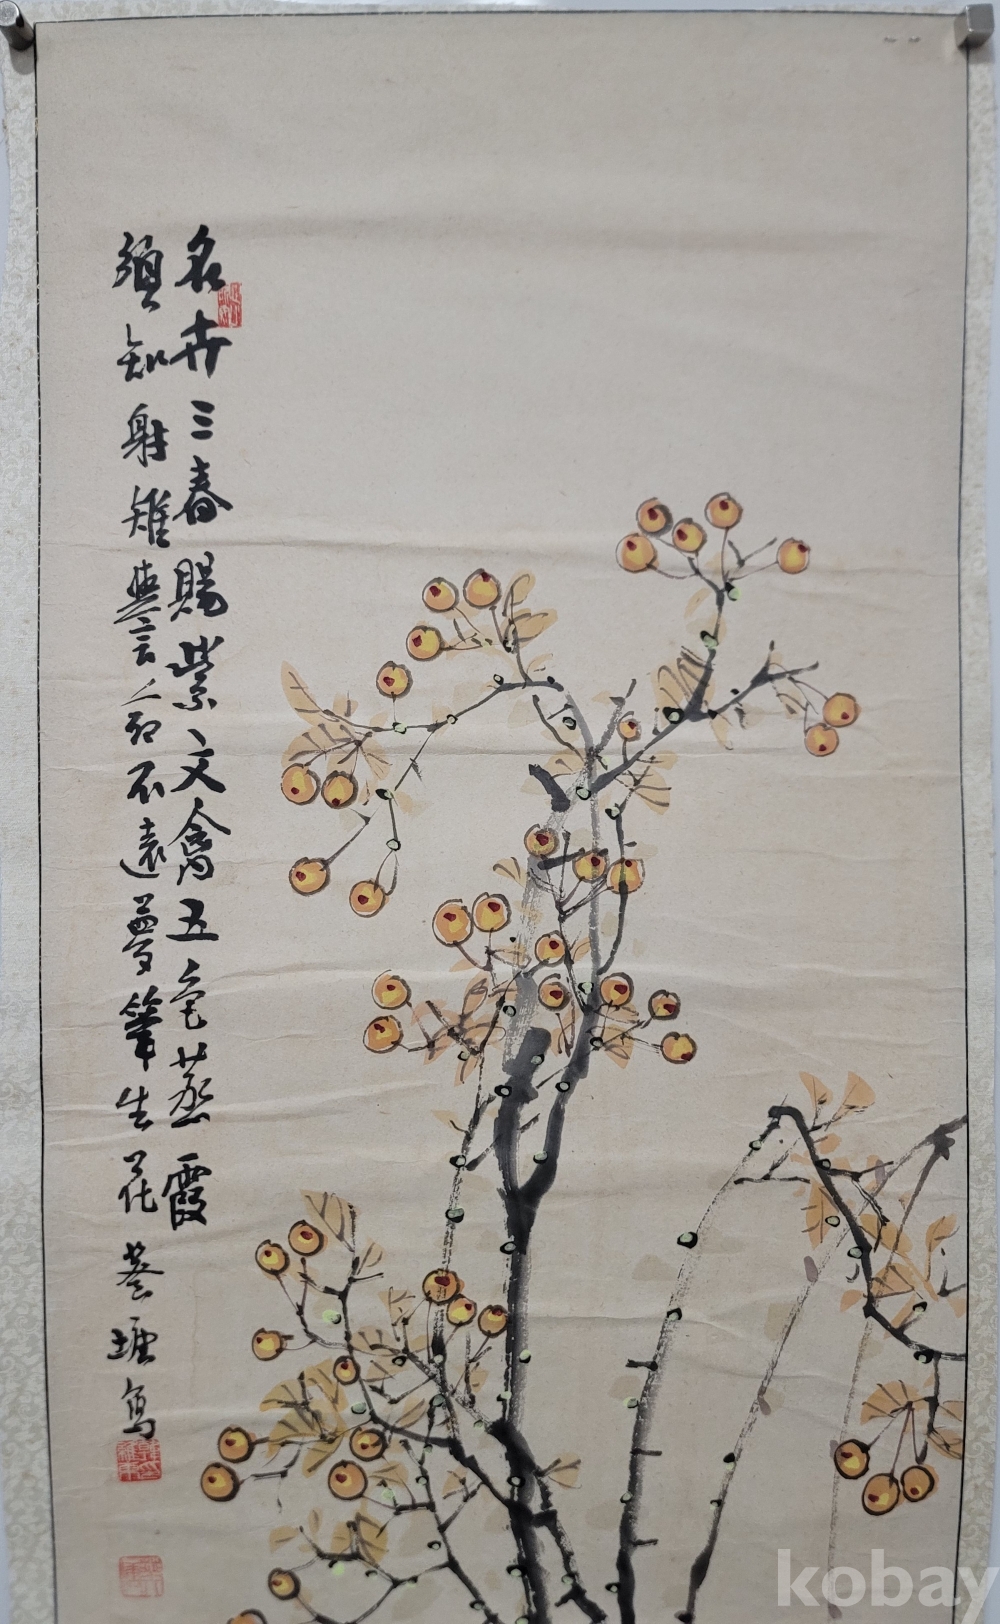 名卉三春賜紫文禽五色蒸霞
須知射雉譽言人却不遠夢筆生花 葊塘寫
kobay